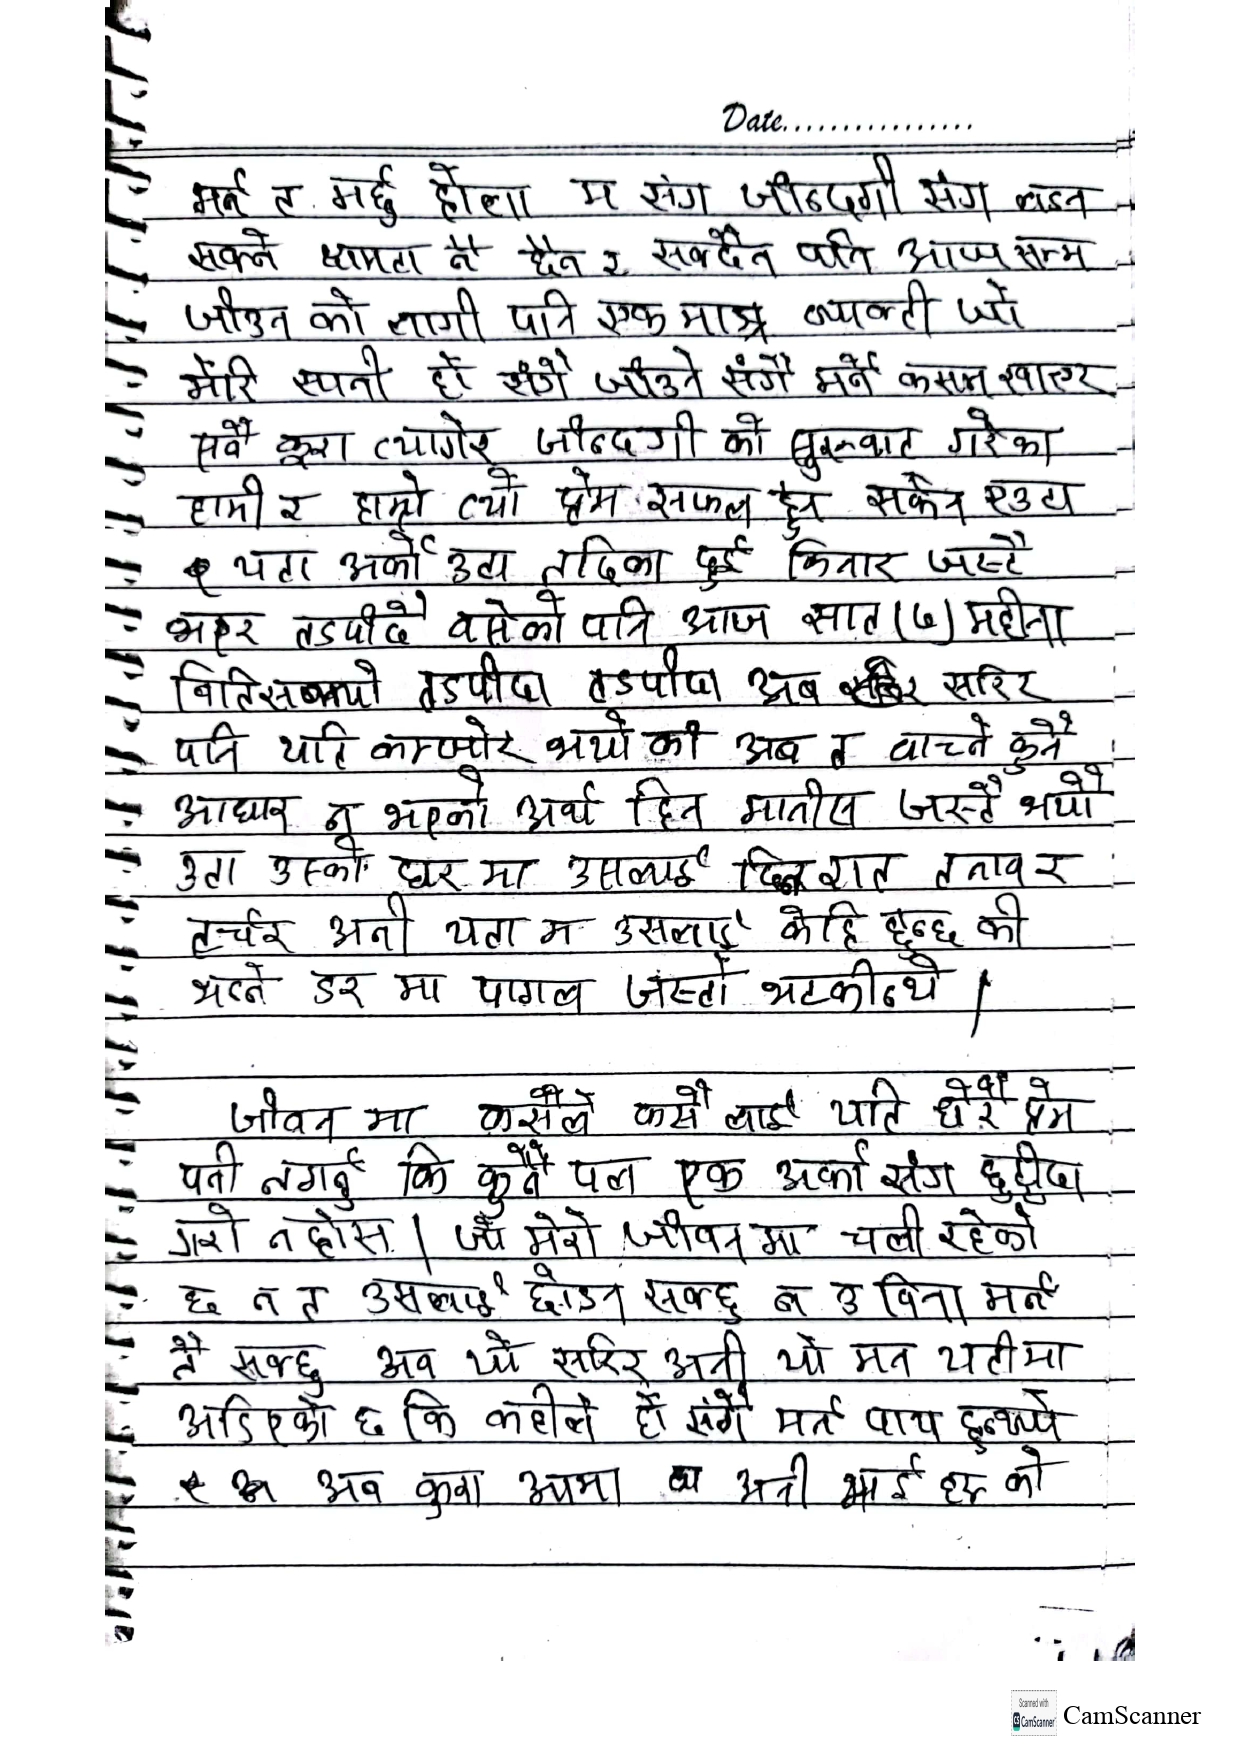 Date................
मर्न त मर्छु होला म संग जीन्दगी संग लडन
सक्ने क्षामता नै छैन र सक्दैन पनि आज सम्म
जीउन को लागी पनि एक मात्र व्यक्ती ज्यो
मेरि स्पनी हो संगै जीउने संगै मर्ने कसम खाएर
सवै कूरा त्यागेर जीन्दगी को सुरूवात गरेका
हामी र हाम्रो त्यो प्रेम सफल हुन सकेन एउटा
यता अर्को उता नदिका दुई किनार जस्तै
भएर तडपीदै वसेको पनि आज सात (७) महीना
वितिसक्यो तडपीदा तडपीदा अब सरिर
पनि यति कम्जोर भयो की अब त वाच्ने कुनै
आधार नू भएको अर्थ हिन मानीस जस्तै भयो
उता उस्को घर मा उसलाई दिन रात तनाव र
टर्चर अनी यता म उसलाई केहि हुन्छ की
भन्ने डर मा पागल जस्तो भटकीन्थे |
जीवन मा कसैले कसै लाई यति धेरै प्रेम
पनी नगर्नु कि कुनै पल एक अर्का संग छुट्टीदा
गारो न होस | जो मेरो जीवन मा चली रहेको
छ न त उसलाई छोडन सक्छु न उ विना मर्न
नै सक्छु अव यो सरिर अनी यो मन यतीमा
अडिएको छ कि कहीले हो संगै मर्न पाय हुन्थ्यो
अव कुरा आमा अनी भाई हरू को
Scanned with
CamScanner
CamScanner